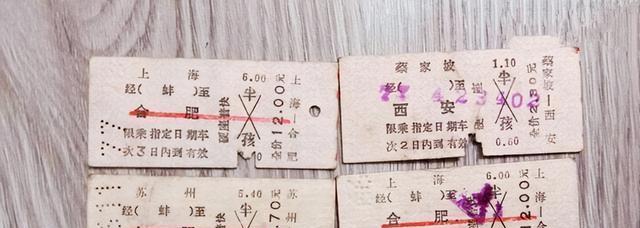 上海
6.00
经(蚌)至
半
合肥
孩
硬座普快
全价12.00元
上海—合肥
限乘指定日期车
次3日内到有效
蔡家坡
1.10
经( )至
半
西安
孩
0.60
限乘指定日期车
次2日内到有效
蔡家坡—西安
苏州
5.40
经(蚌)至
半
苏州
上海
6.00
经(蚌)至
半
合肥
上海—合